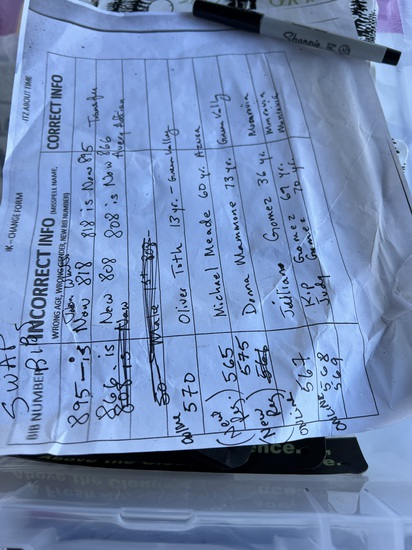 K – CHANGE FORM
ITZ ABOUT TIME
SWAP
BIBS
BIB NUMBER
INCORRECT INFO (MISSPELL NAME,
WRONG AGE, WRONG GENDER, NEW BIB NUMBER)
CORRECT INFO
895 – is Now 818 818 is Now 895 Transfer
866 is Now 808 808 is Now 866
808 is Now
Online 570 Oliver Toth 13 yr. – Green Valley
(New Reg.) 565 Michael Meade 60 yr. Azusa
(New Reg) 575 Donna Mammone 73 yr. Green Vally
Online 567 Julliana Gomez 36 yr. Monrovia
Online 568 Kip Gomez 69 yr. Monrovia
Online 569 Judy Gomez 70 yr.
Sharpie
ence.
e.